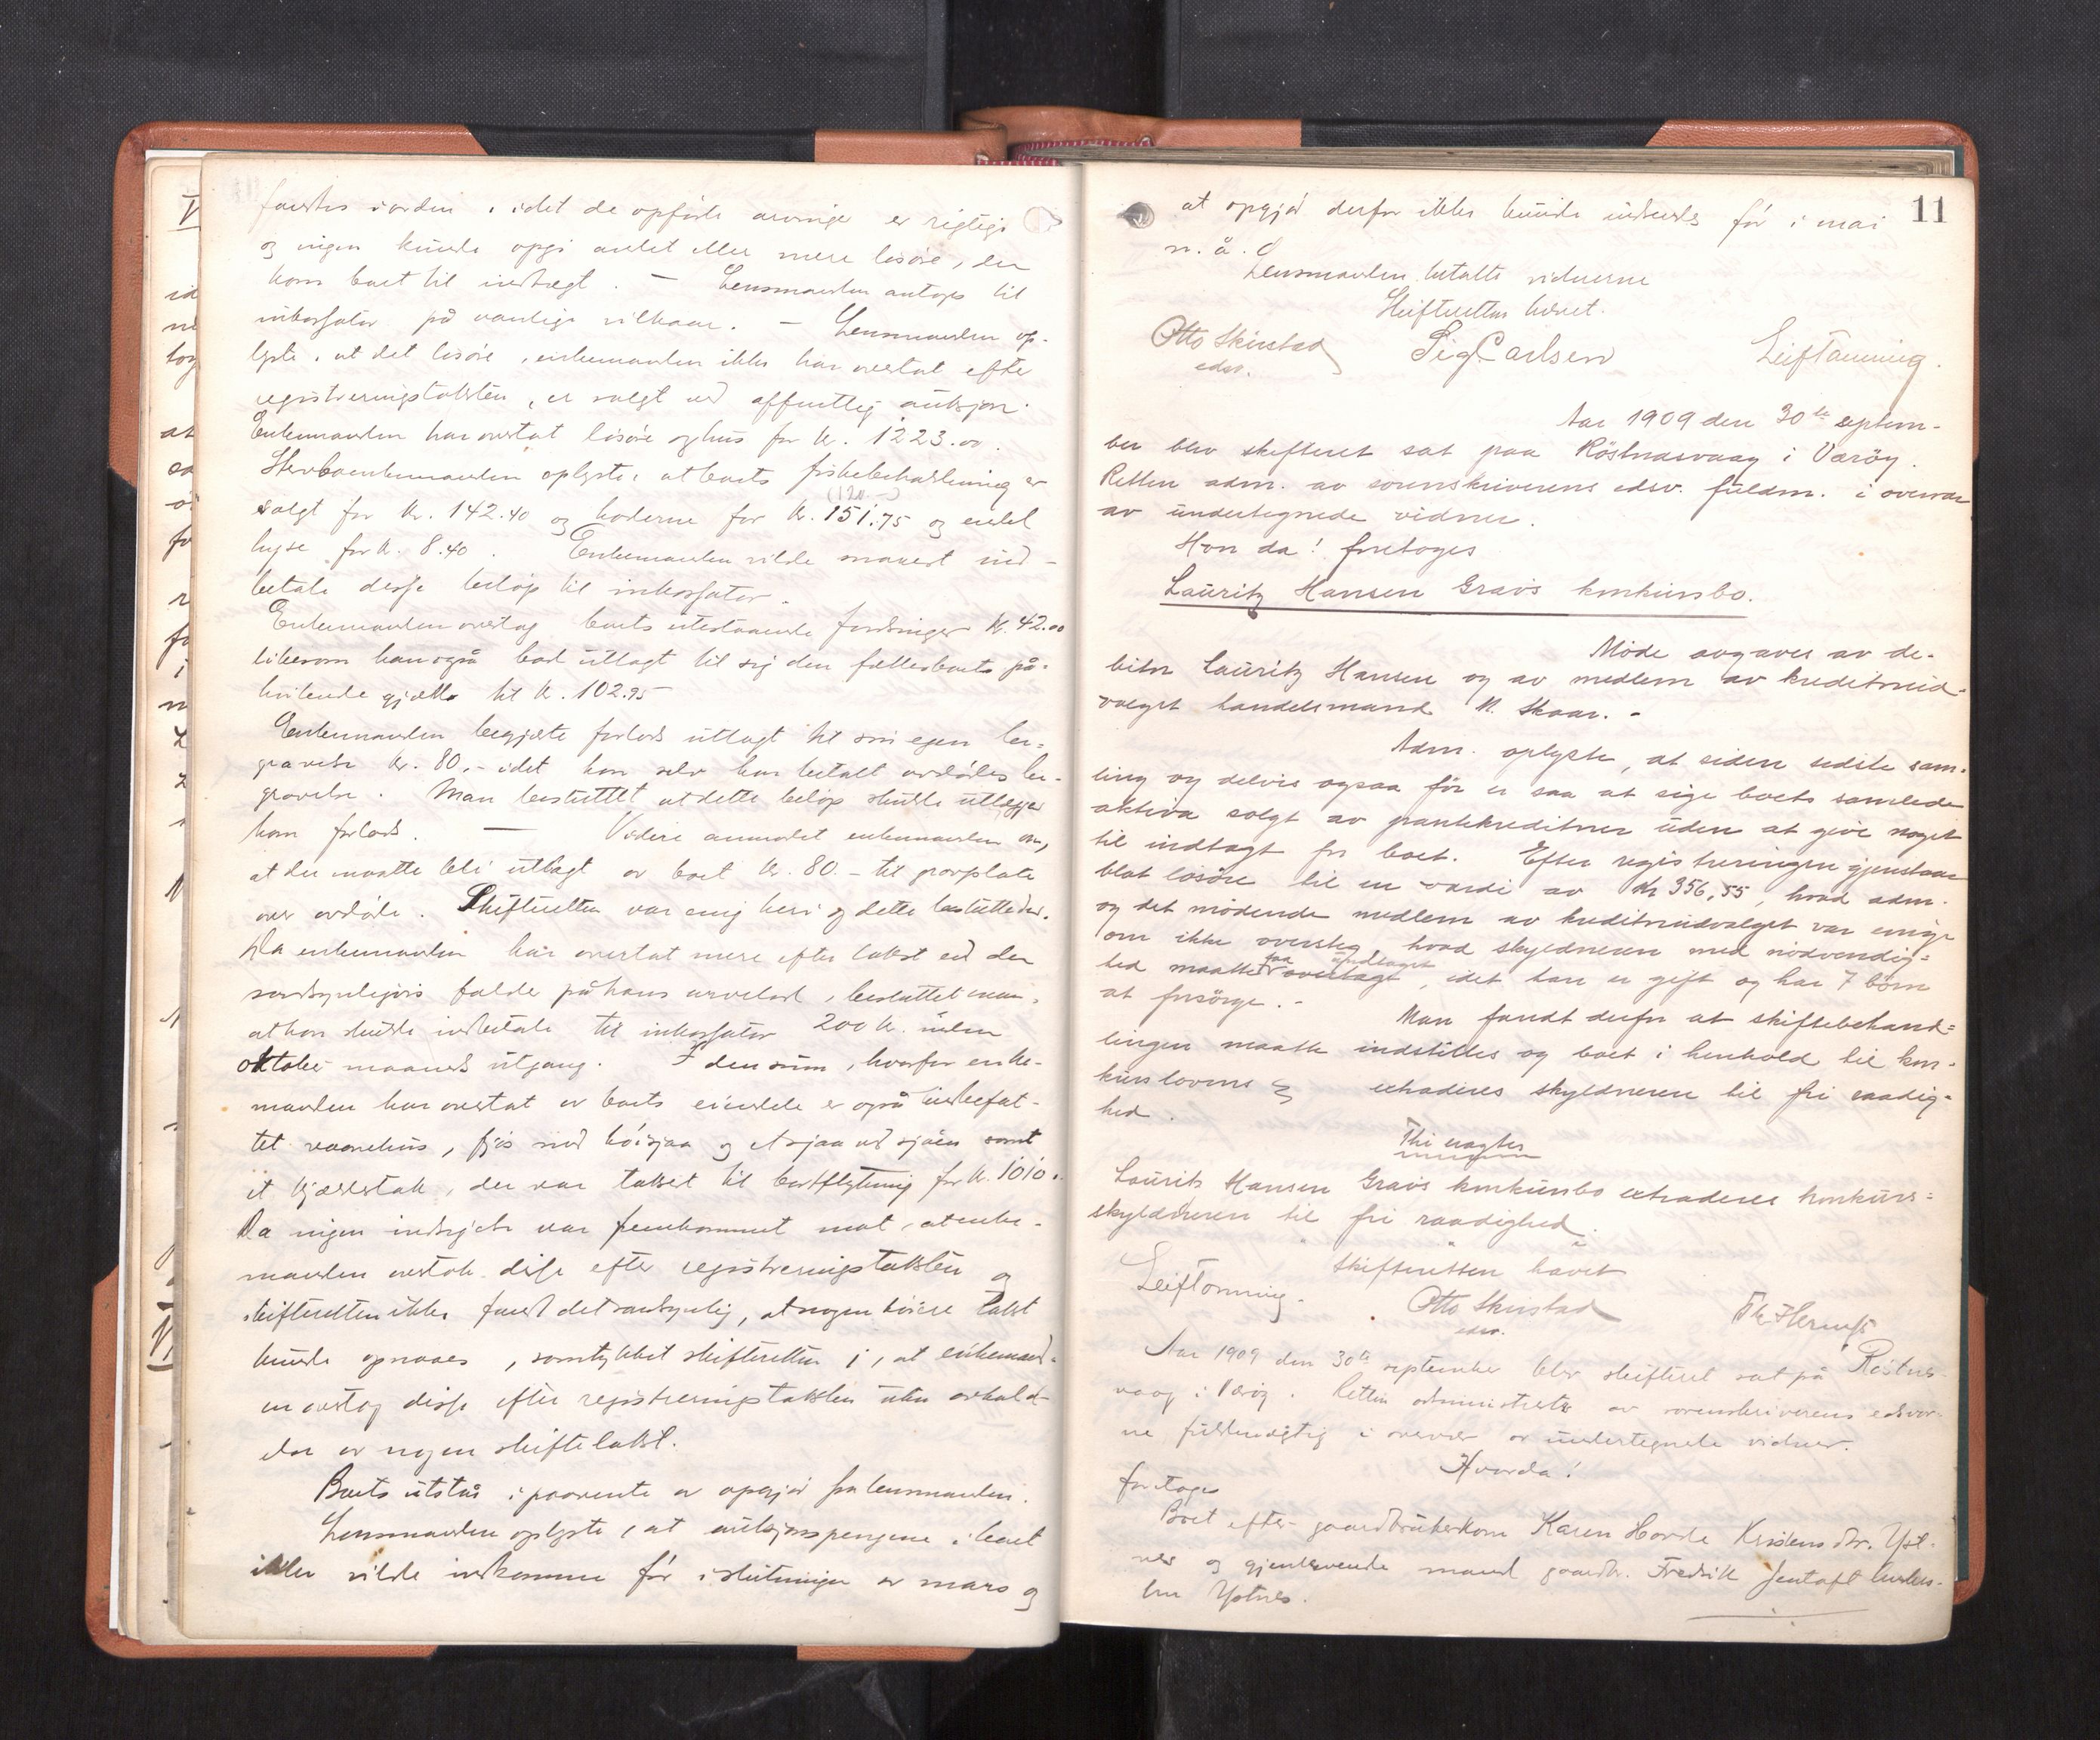 fandtes iorden, idet de opførte arvinge er rigtige
og ingen kunde opgi andet eller mere løsøre, der
kom boet til indtægt. — Lensmanden antoges til
inkassator på vanlige vilkaar. — Lensmanden op-
lyste, at det løsøre, enkemanden ikke har overtat efter
registreringstaksten, er solgt ved offentlig auksjon.
Enkemanden har overtat løsøre og hus for kr. 1223.00.
Herboenkemanden oplyste, at boets fiskebeholdning er
(120.–)
solgt for kr. 142.40 og hoderne for kr. 151.75 og endel
lyse for kr. 8.40. Enkemanden vilde snarest ind-
betale disse beløp til inkassator.
Enkemanden overtog boets utestaaende fordringer kr. 42.00
likesom han også fik utlagt til sig den fællesboets på-
hvilende gjæld til kr. 102.95
Enkemanden begjærte forlods utlagt til sin egen be-
gravelse kr. 80.– idet han selv har betalt avdødes be-
gravelse. Man besluttet at dette beløp skulde utlægges
ham forlods. — Videre anmodet enkemanden om,
at der maatte bli utlagt av boet kr. 80.– til gravplate
over avdøde. Skifteretten var enig heri og dette besluttedes.
Da enkemanden har overtat mere efter takst end der
sandsynligvis falder på hans arvelod, besluttet man,
at han skulde indbetale til inkassator 200 kr. inden
oktober maaneds utgang. I den sum, hvorfor enke-
manden har overtat av boets eiendele er også indbefat-
tet vaanehus, fjøs med høisjaa og et sjaa ved sjøen samt
it kjøkkentak, der var takset til bortflytning for kr. 1010.
Da ingen indsigelse var fremkommet mot, at enke-
manden overtok disse efter registreringstaksten og
skifteretten ikke fandt det sandsynlig, at nogen høiere takst
kunde opnaaes, samtykket skifteretten i, at enkemand-
en overtog disse efter registreringstaksten uten avhold-
else av nogen skiftetakst.
Boets utstår i paavente av opgjør fra lensmanden.
Lensmanden oplyste, at auksjonspengene i boet
ikke vilde indkomme før i slutningen av mars og
11
at opgjør derfor ikke kunde indsendes før i mai
n. å.
Lensmanden betalte vidnerne
Skifteretten hævet.
Otto Skirstad Sig. Carlsen Leif Tønning.
edsv.
Aar 1909 den 30te septem-
ber blev skifteret sat paa Röstnesvaag i Værøy.
Retten adm. av sorenskriverens edsv. fuldm. i overvær
av undertegnede vidner.
Hvor da! foretoges
Lauritz Hansen Gravs konkursbo.
Møde avgaves av de-
bitor Lauritz Hansen og av medlem av kreditorud-
valget handelsmand N. Skaar. -
Adm. oplyste, at siden sidste sam-
ling og delvis ogsaa før er saa at sige boets samlede
aktiva solgt av pantekreditorer uden at give noget
til indtægt for boet. Efter registreringen gjenstaar
blot løsøre til en værdi av kr 356,55, hvad adm.
og det mødende medlem av kreditorudvalget var enige
om ikke oversteg, hvad skyldneren med nødvendig-
faa undtaget
hed maatte overtage, idet han er gift og har 7 børn
at forsørge. -
Man fandt derfor at skiftebehand-
lingen maatte indstilles og boet i henhold til kon-
kurslovens § extraderes skyldneren til fri raadig-
hed.
Thi vagtes
Laurits Hansen Gravs konkursbo extraderes konkurs-
skyldneren til fri raadighed.
Skifteretten hævet
Leif Tønning. Otto Skirstad
edsv.
Aar 1909 den 30te september blev skifteret sat på Röstnes-
vaag i Værøy. Retten administrertes av sorenskriverens edsvor-
ne fuldmægtig i overvær av undertegnede vidner.
Hvorda!
foretoges
Boet efter gaardbrukerkone Karen Hovde Kristensdtr. Yst-
nes og gjenlevende mand gaardbr. Fredrik Jentoft Anders-
sen Ystnes.